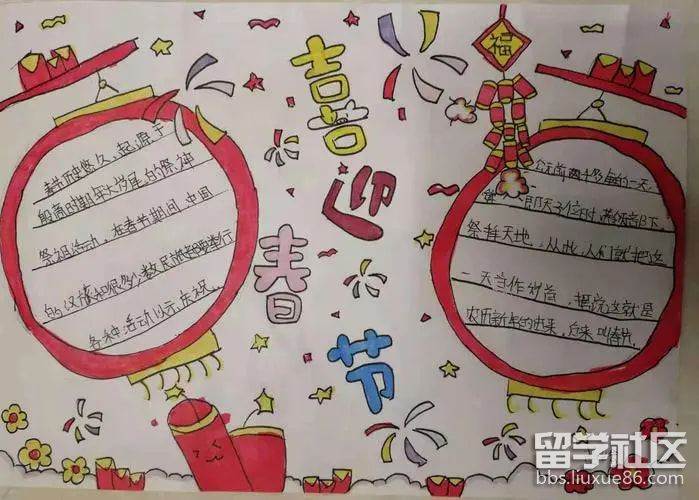 喜迎春节
福
春节历史悠久，起源于
殷商时期年头岁尾的祭神
祭祖活动，在春节期间，中国
的汉族和很多少数民族都要举行
各种活动以示庆祝
公元前两千多年的一天，
舜即天子位时，带领部下，
祭拜天地，从此，人们就把这
一天当作岁首，据说这就是
农历新年的由来，后来叫春节，
留学社区
bbs.liuxue86.com